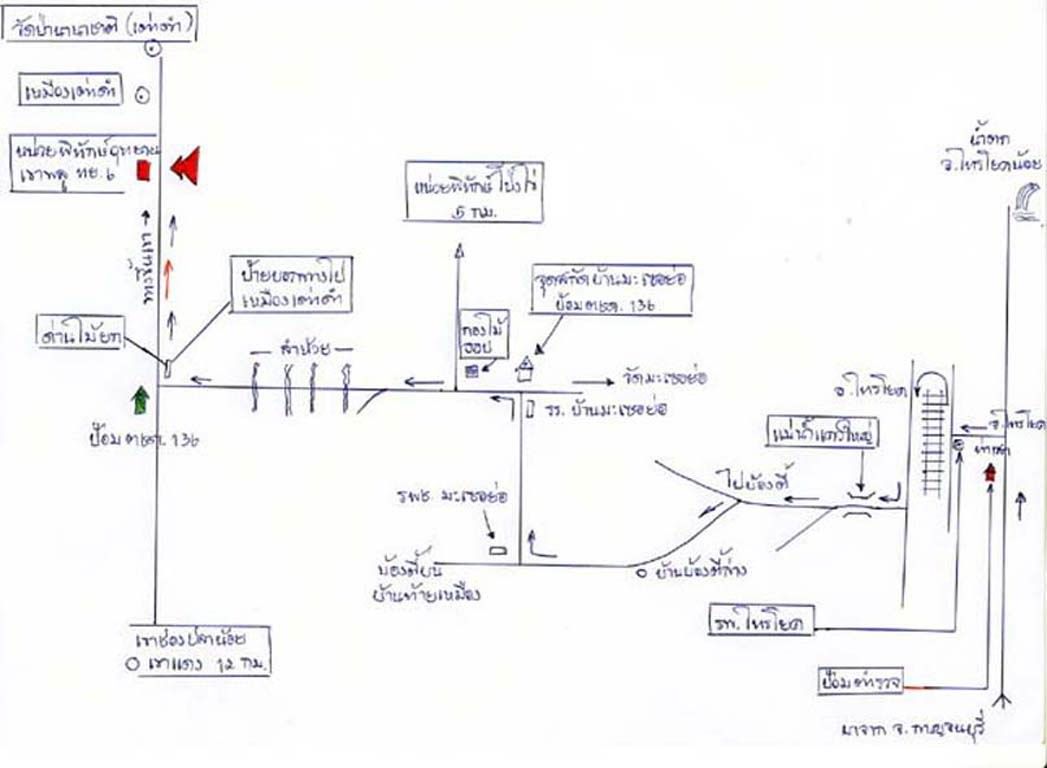 วัดป่านานาชาติ (เต่าดำ)
เหมืองเต่าดำ
หน่วยพิทักษ์อุทยาน
เขาพลู ทย. 6
หน่วยพิทักษ์โป่งไข่
5 กม.
น้ำตก
อ.ไทรโยคน้อย
ป้ายบอกทางไป
เหมืองเต่าดำ
จุดสกัดบ้านมะเซอย่อ
ป้อม ตชด. 136
กองไม้
ด่านไม้ยก
ลำห้วย
วัดมะเซอย่อ
รร. บ้านมะเซอย่อ
ป้อม ตชด. 136
อ.ไทรโยค
อ.ไทรโยค
แม่น้ำแควใหญ่
ไปบ้องตี้
รพช. มะเซอย่อ
บ้องตี้บน
บ้านท้ายเหมือง
บ้านบ้องตี้ล่าง
รพ.ไทรโยค
เขาช่องปลาน้อย
เขาแดง 12 กม.
ป้อมตำรวจ
มาจาก จ.กาญจนบุรี